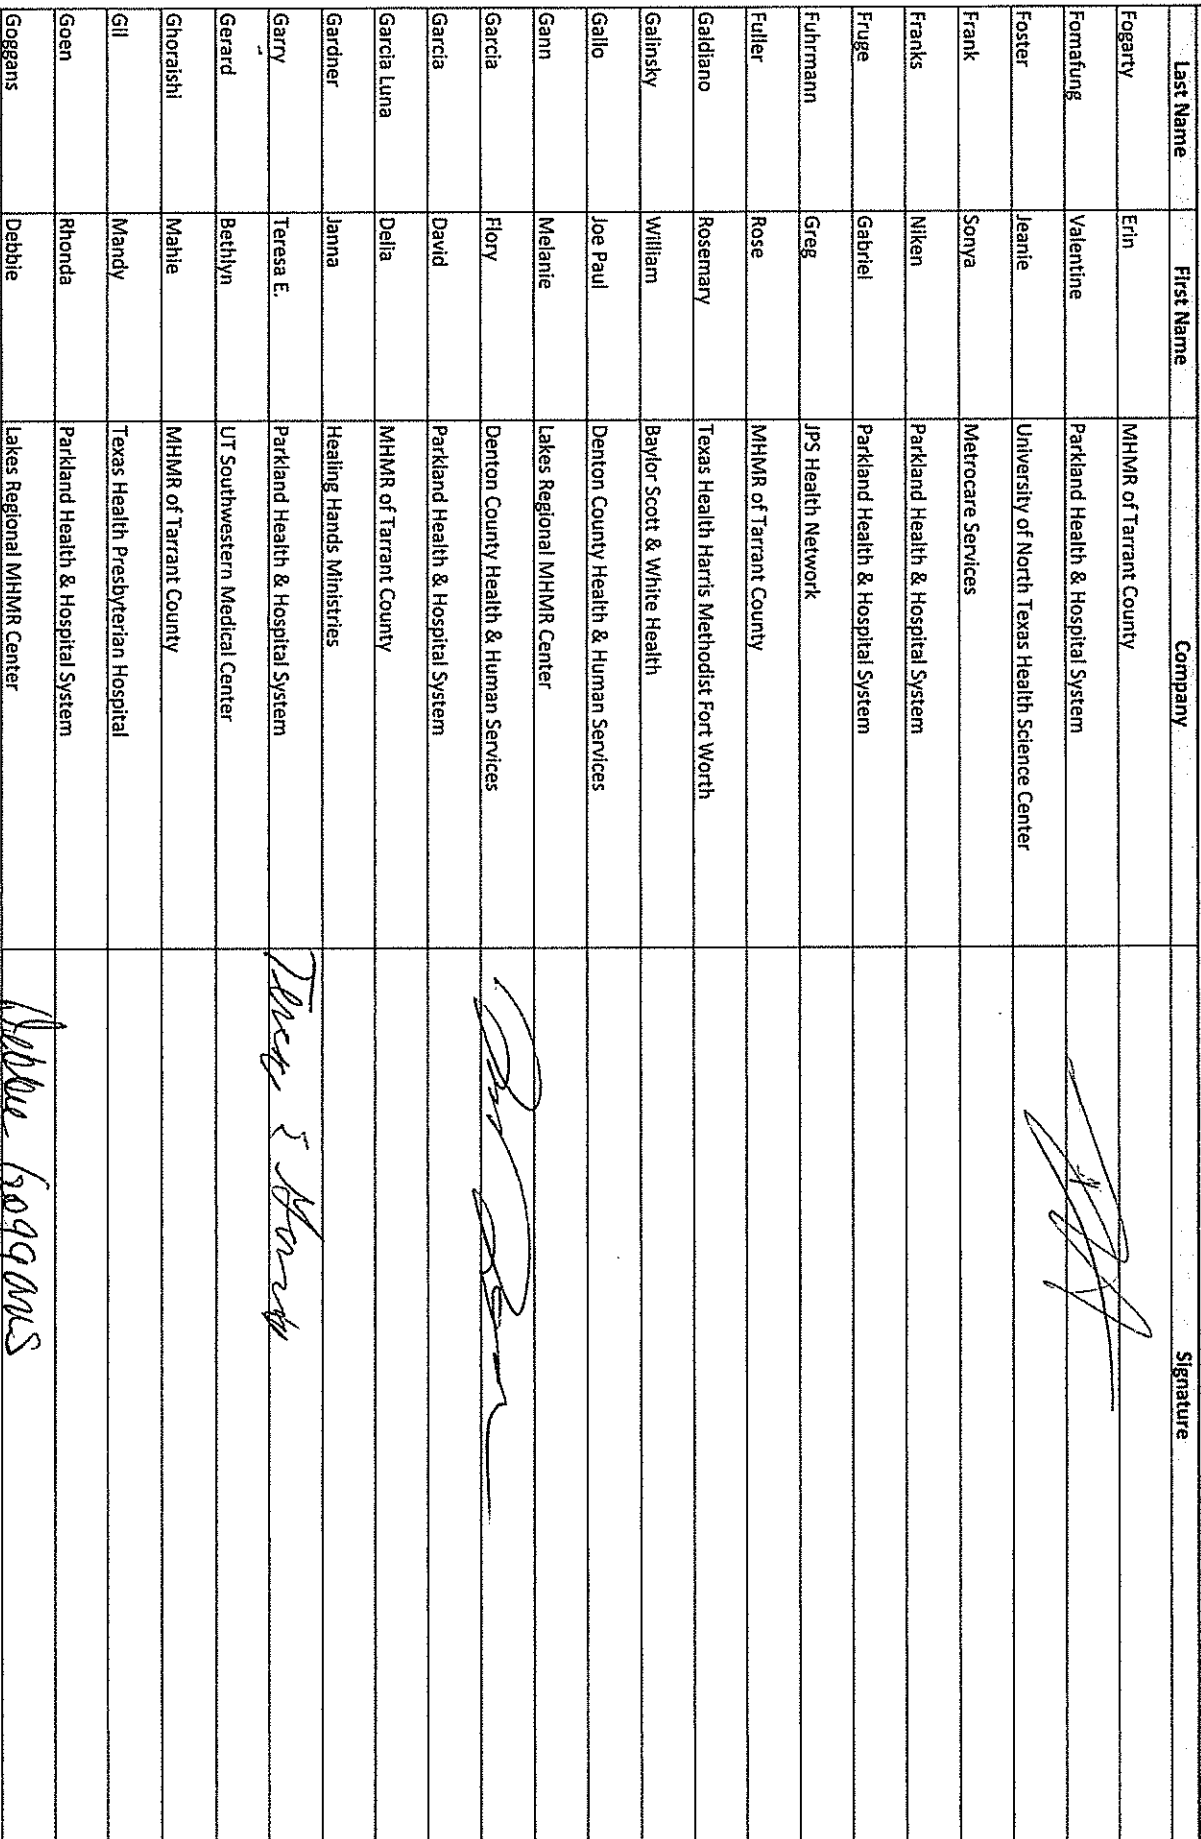 Last Name First Name Company Signature
Fogarty Erin MHMR of Tarrant County
Fomafung Valentine Parkland Health & Hospital System
Foster Jeanie University of North Texas Health Science Center
Frank Sonya Metrocare Services
Franks Niken Parkland Health & Hospital System
Fruge Gabriel Parkland Health & Hospital System
Fuhrmann Greg JPS Health Network
Fuller Rose MHMR of Tarrant County
Galdiano Rosemary Texas Health Harris Methodist Fort Worth
Galinsky William Baylor Scott & White Health
Gallo Joe Paul Denton County Health & Human Services
Gann Melanie Lakes Regional MHMR Center
Garcia Flory Denton County Health & Human Services
Garcia David Parkland Health & Hospital System
Garcia Luna Delia MHMR of Tarrant County
Gardner Janna Healing Hands Ministries
Garry Teresa E. Parkland Health & Hospital System Teresa E Garry
Gerard Bethlyn UT Southwestern Medical Center
Ghoraishi Mahie MHMR of Tarrant County
Gil Mandy Texas Health Presbyterian Hospital
Goen Rhonda Parkland Health & Hospital System
Goggans Debbie Lakes Regional MHMR Center Debbie Goggans